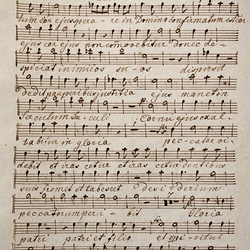 tum cor ejus sperare in Domino confirmatum est cor
ejus cor ejus non commovebitur donec de-
spiciat inimicos suos dispersit
dedit pauperibus justitia ejus manet in
saeculum saeculi Cornu ejus exal-
tabitur in gloria peccator vi-
debit et irascetur et irascetur dentibus
suis fremet et tabescet desiderium
peccatorum peribit Gloria
patri patri et filio et spiritui